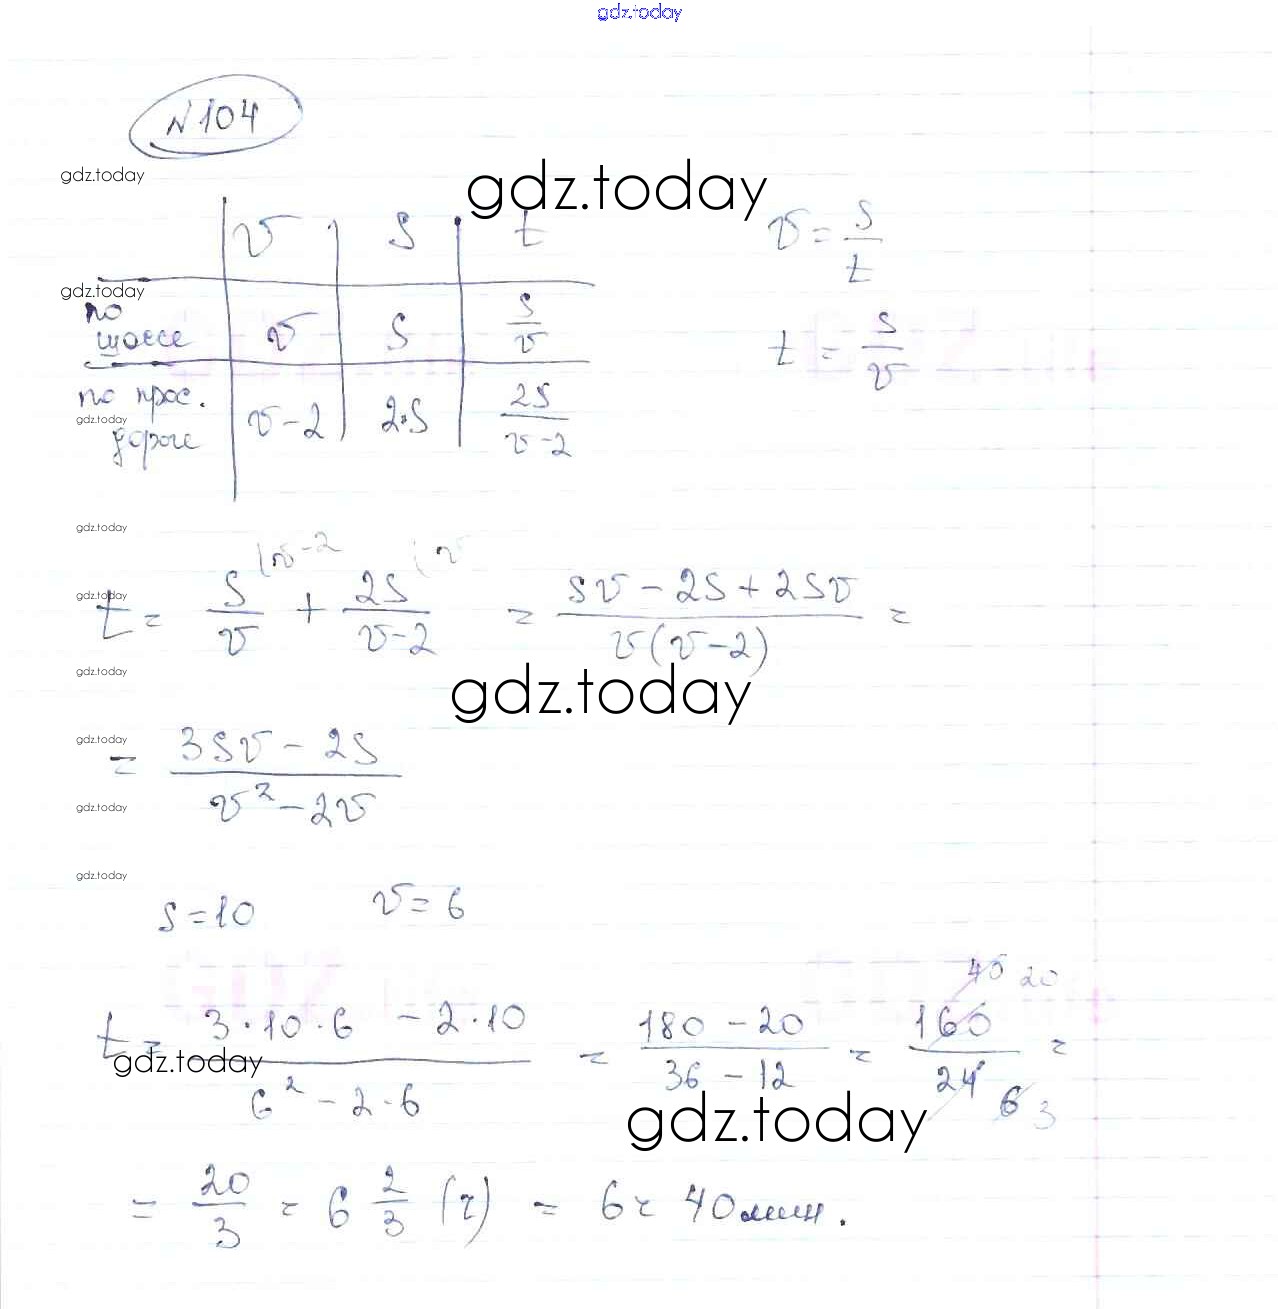 gdz.today
N 104
gdz.today
gdz.today
v S t
v = S/t
gdz.today
по шоссе v S S/v
t = S/v
по прос. дороге v-2 2·S 2S/(v-2)
gdz.today
gdz.today
(v-2 (v
gdz.today
t = S/v + 2S/(v-2) = (Sv - 2S + 2Sv)/(v(v-2)) =
gdz.today
gdz.today
gdz.today
= (3Sv - 2S)/(v² - 2v)
gdz.today
gdz.today
S = 10 v = 6
40 20
t = (3·10·6 - 2·10)/(6² - 2·6) = (180 - 20)/(36 - 12) = 160/24 =
6 3
gdz.today
gdz.today
= 20/3 = 6 2/3 (ч) = 6ч 40мин.